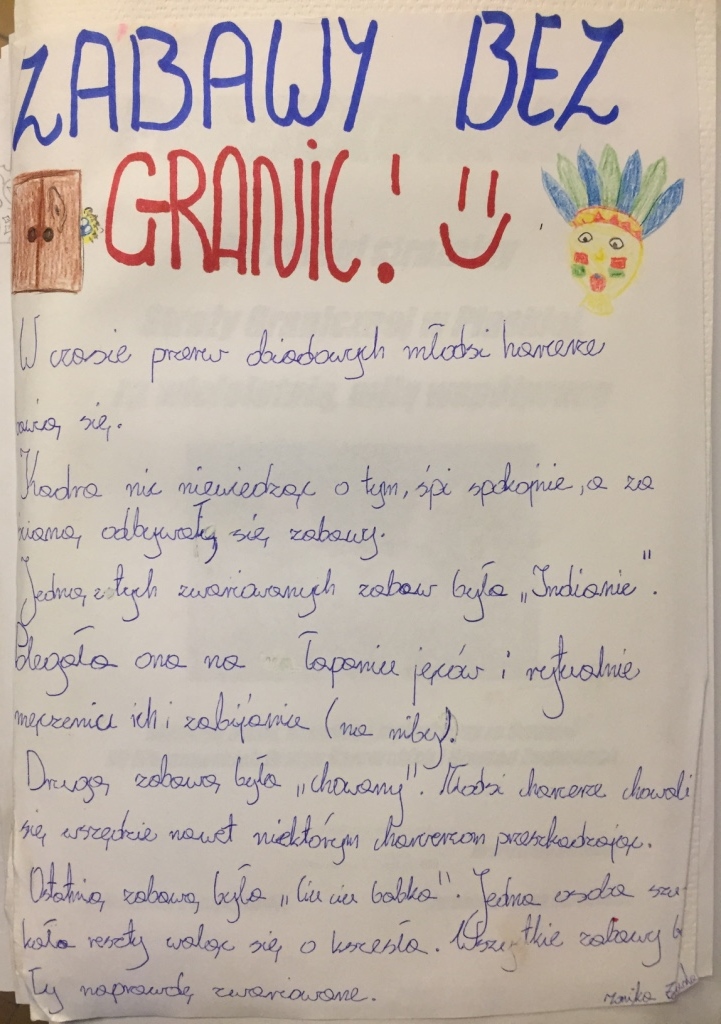 ZABAWY BEZ
GRANIC!
W czasie przerw obiadowych młodsi harcerze
bawią się.
Kadra nic niewiedząc o tym, śpi spokojnie, a za
ścianą odbywały się zabawy.
Jedną z tych zwariowanych zabaw była „Indianie".
Polegała ona na łapaniu jeńców i rytualnie
męczeniu ich i zabijanie (na niby).
Drugą zabawą była „chowany". Młodsi charcerze chowali
się wszędzie nawet niektórym charcerzom przeszkadzając.
Ostatnią zabawą była „Ciu ciu babka". Jedna osoba szu-
kała reszty waląc się o krzesła. Wszystkie zabawy by
ły naprawdę zwariowane.